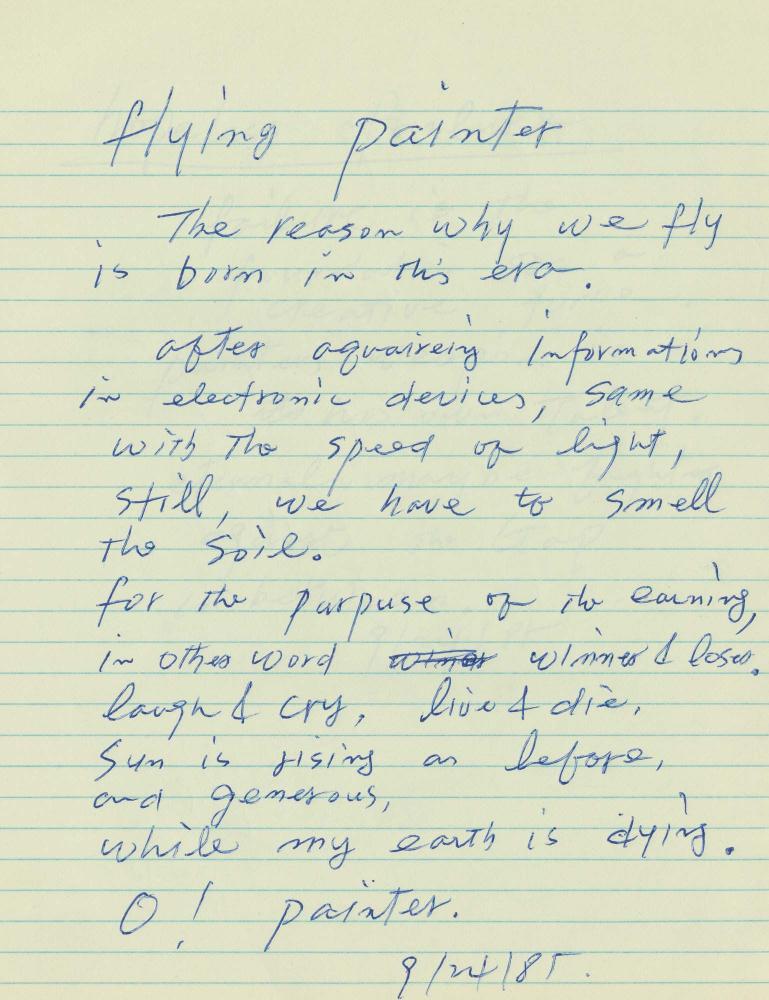 flying painter
The reason why we fly
is born in this era.
after aquaireing informations
in electronic devices, same
with the speed of light,
still, we have to smell
the soil.
for the purpuse of the earning,
in other word winner & loser.
laugh & cry, live & die,
Sun is rising as before,
and generous,
while my earth is dying.
O! painter.
9/24/85.